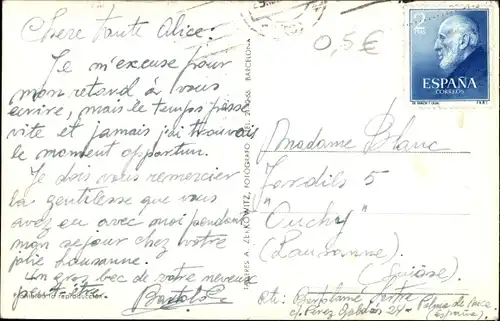 Chere tante Alice.
Je m'excuse pour
mon retard à vous
écrire, mais le temps passe
vite et jamais j'ai trouvais
le moment opportun.
Je dois vous remercier
la gentilesse que vous
avez eu avec moi pendant
mon sejour chez votre
jolie Lausanne.
Un gros bec de votre neveur
peut-être
PROHIBIDA REPRODUCCION
TALLERES A. ZERKOWITZ, FOTOGRAFO BARCELONA
0,5€
2
PTAS
ESPAÑA
CORREOS
DR. RAMON Y CAJAL
F.N.M.T.
Madame Blanc
Jordils 5
"Ouchy"
(Lausanne)
(Suisse)
c/. Perez Galdós 24- Palma de
(España)